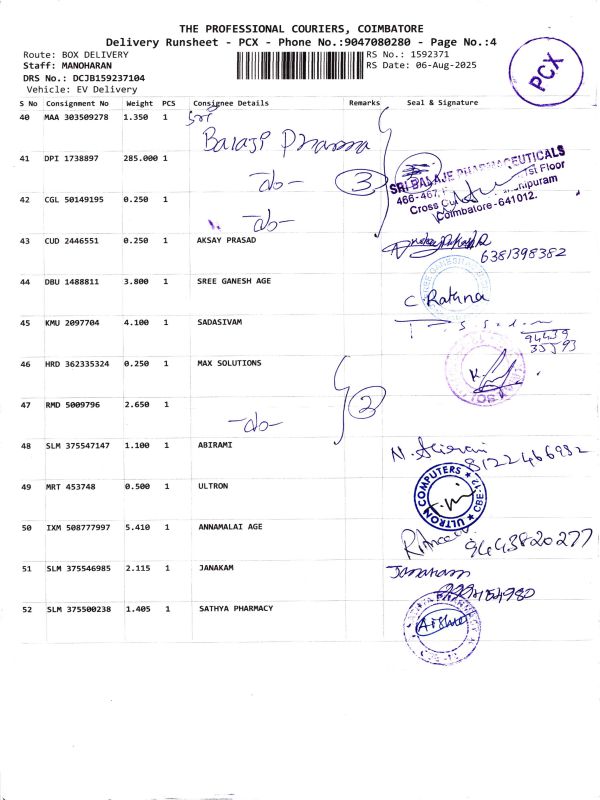 THE PROFESSIONAL COURIERS, COIMBATORE
Delivery Runsheet - PCX - Phone No.:9047080280 - Page No.:4
Route: BOX DELIVERY
RS No.: 1592371
Staff: MANOHARAN
RS Date: 06-Aug-2025
DRS No.: DCJB159237104
Vehicle: EV Delivery
PCX
S No Consignment No Weight PCS Consignee Details Remarks Seal & Signature
40 MAA 303509278 1.350 1 Sri
Balaji Pharma
41 DPI 1738897 285.000 1
-do- 3
SRI BALAJE PHARMACEUTICALS
466-467, 1st Floor
Cross Cut
Coimbatore-641012.
42 CGL 50149195 0.250 1
-do-
43 CUD 2446551 0.250 1 AKSAY PRASAD
6381398382
44 DBU 1488811 3.800 1 SREE GANESH AGE
C Rathna
45 KMU 2097704 4.100 1 SADASIVAM
94439
35593
46 HRD 362335324 0.250 1 MAX SOLUTIONS
K
47 RMD 5009796 2.650 1 2
-do-
48 SLM 375547147 1.100 1 ABIRAMI
8122466932
49 MRT 453748 0.500 1 ULTRON
ULTRON COMPUTERS ★ CBE-12 ★
50 IXM 508777997 5.410 1 ANNAMALAI AGE
9443820277
51 SLM 375546985 2.115 1 JANAKAM
Janakam
52 SLM 375500238 1.405 1 SATHYA PHARMACY